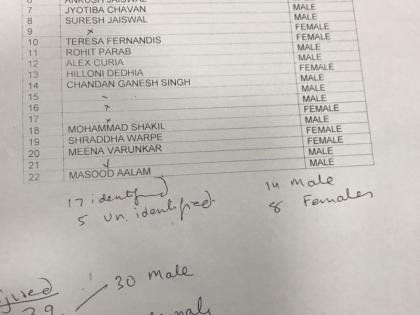 7 JYOTIBA CHAVAN MALE
8 SURESH JAISWAL MALE
9 x FEMALE
10 TERESA FERNANDIS FEMALE
11 ROHIT PARAB MALE
12 ALEX CURIA MALE
13 HILLONI DEDHIA FEMALE
14 CHANDAN GANESH SINGH MALE
15 MALE
16 x FEMALE
17 x MALE
18 MOHAMMAD SHAKIL MALE
19 SHRADDHA WARPE FEMALE
20 MEENA VARUNKAR FEMALE
21 MALE
22 MASOOD AALAM MALE
17 identified 14 male
5 un. identified. 8 Females
30 male